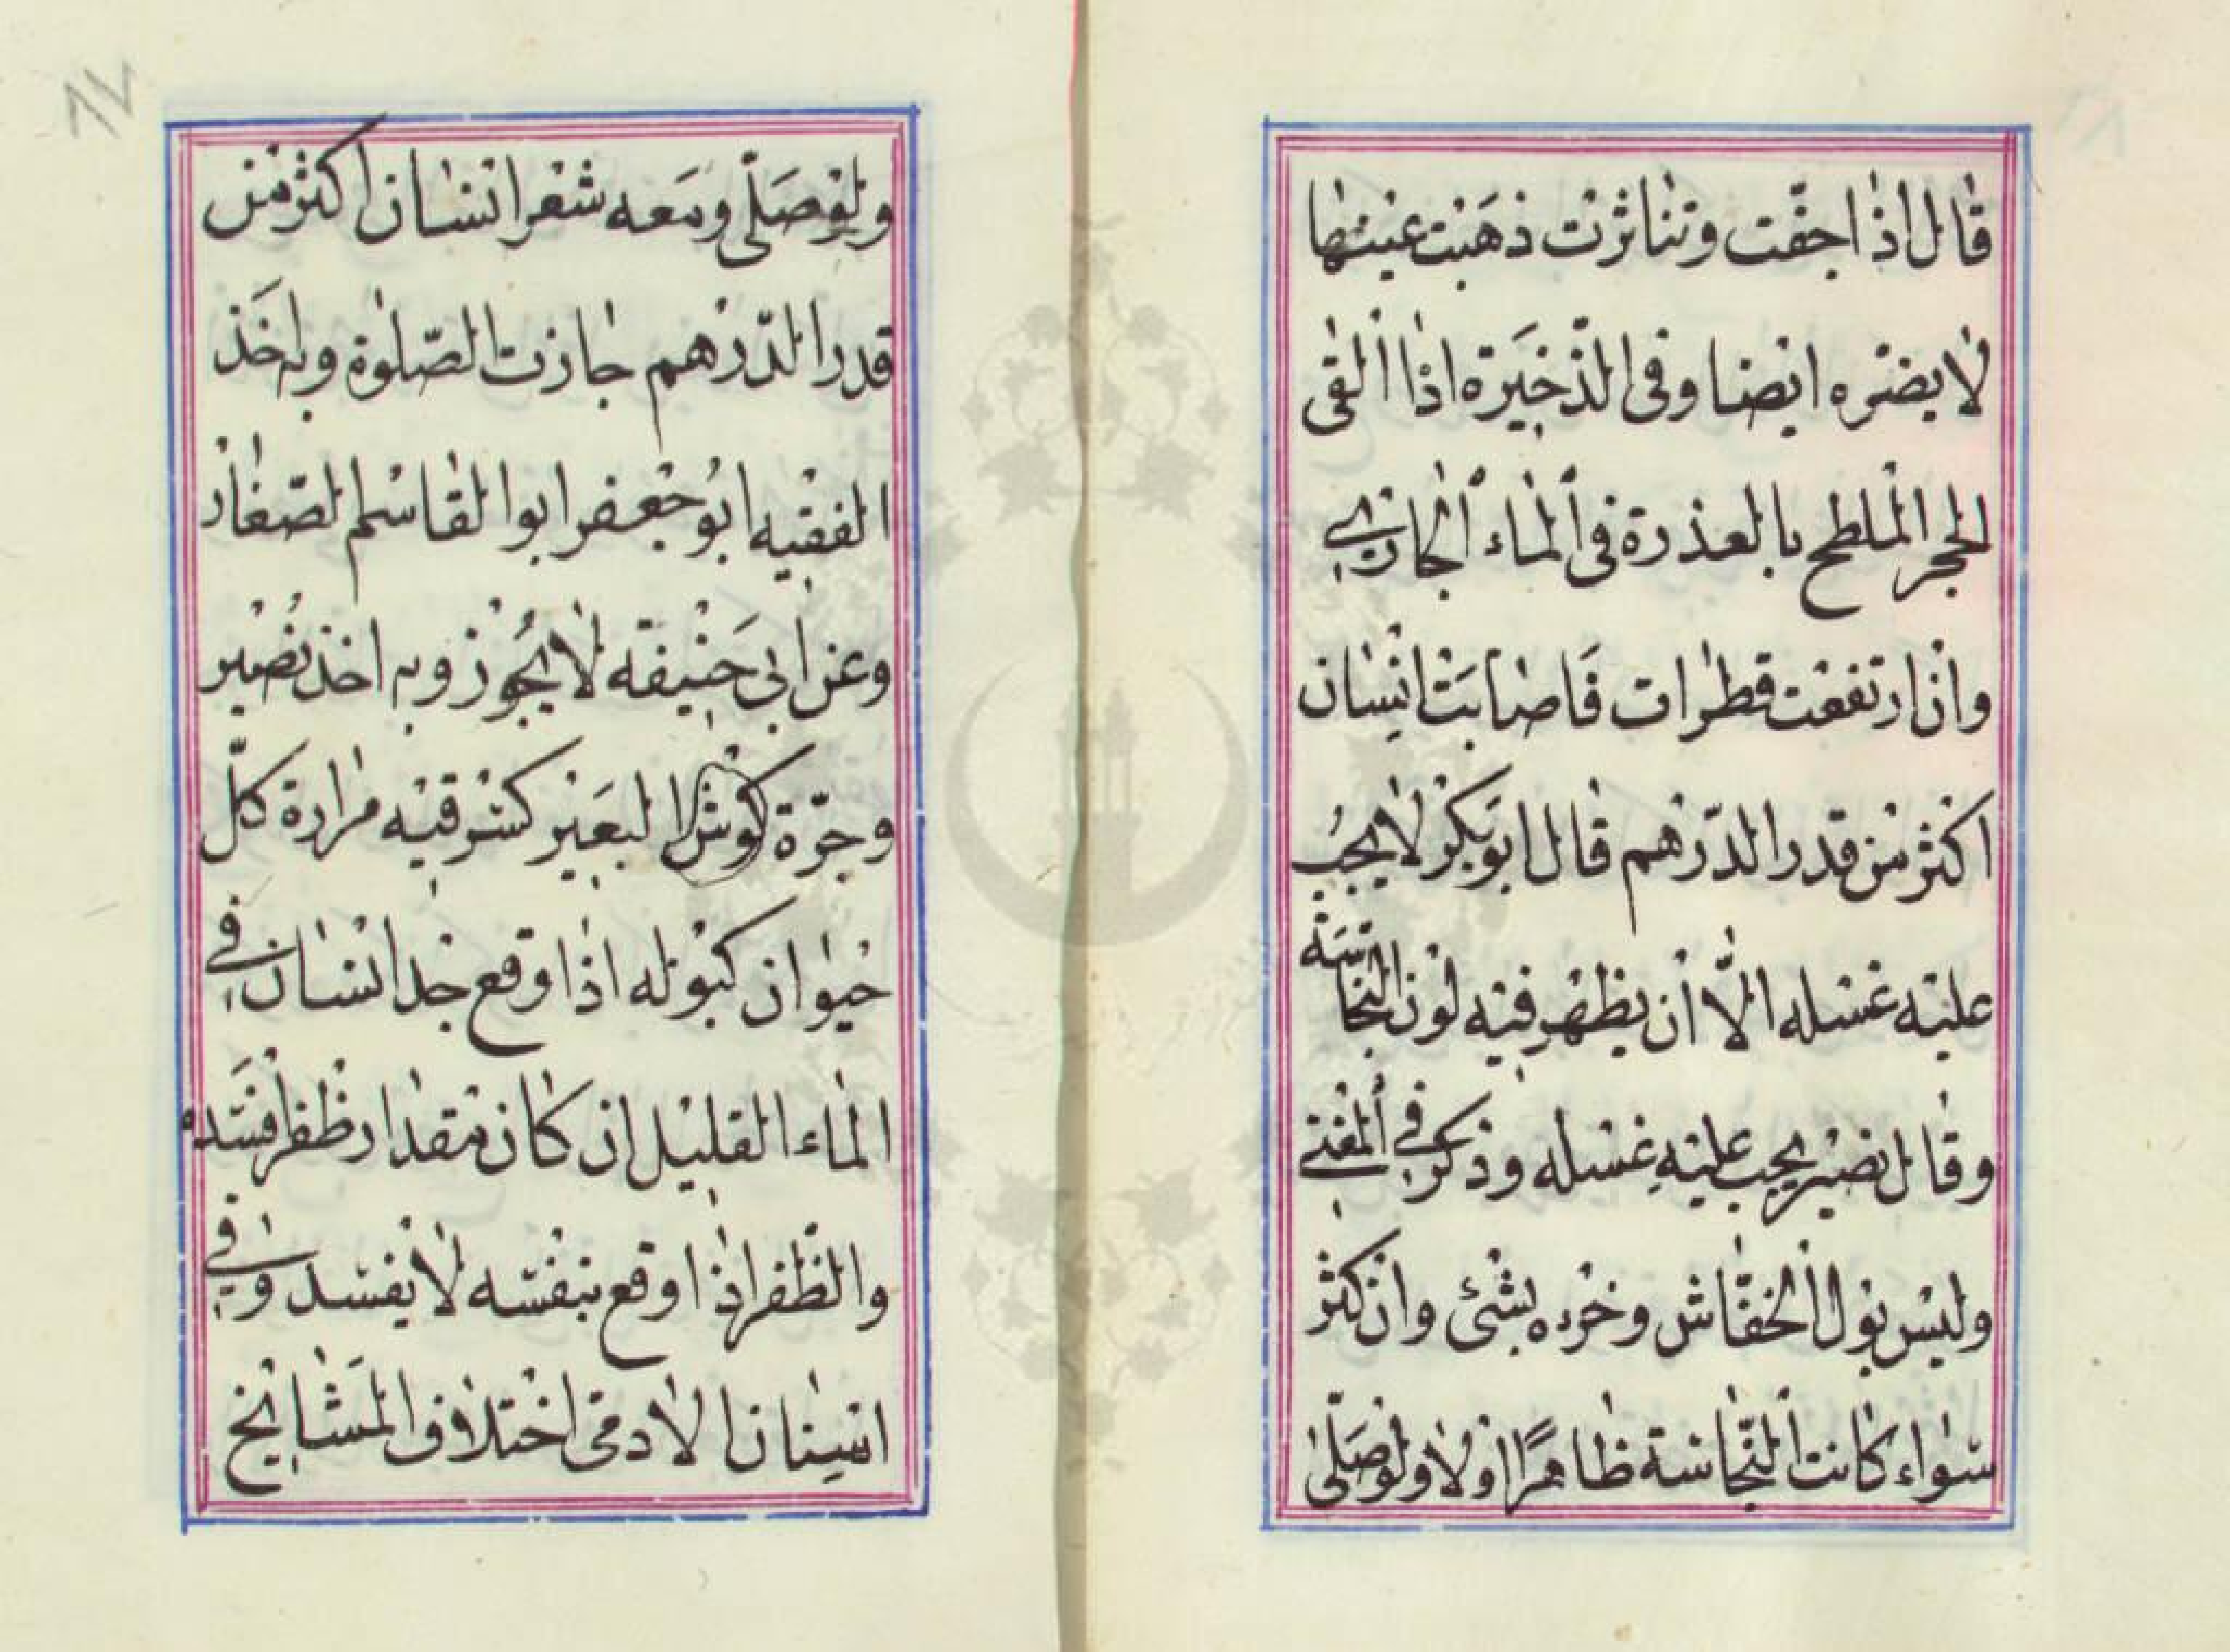 قال اذا جفّت وتناثرت ذهبت عينها
لا يضره ايضا وفى الذّخيَرة اذا القى
الحجر الملطح بالعذرة فى الماء الجارى
وان ارتفعت قطرات فَاصابَت انسان
اكثر من قدر الدّرهم قال ابو بَكر لا يجبُ
عليه غسله الّا ان يظهر فيه لون النجاسَة
وقال نصير يجب عليهِ غسله وذكر فى المغنى
وليس بول الخفّاش وخرءه بشئ وان كثر
سواء كانت النّجاسة ظاهرًا اولا ولو صَلّى
ولو صَلّى ومَعه شعر انسان اكثر من
قدر الدّرهم جازت الصّلوة وبه اخَذ
الفقيه ابُو جعفر ابو القاسم الصّفار
وعن ابى حَنيفة لا يجُوز وبه اخذ نُصير
وجرّة كوش البعَير كسرقيه مرارة كلّ
حيوان كبوله اذا وقع جلد انسان فى
الماء القليل ان كان مقدار ظفر افسَده
والظّفر اذا وقع بنفسه لا يفسد وفى
اسنان الادمى اختلاف المَشايخ
٨٧